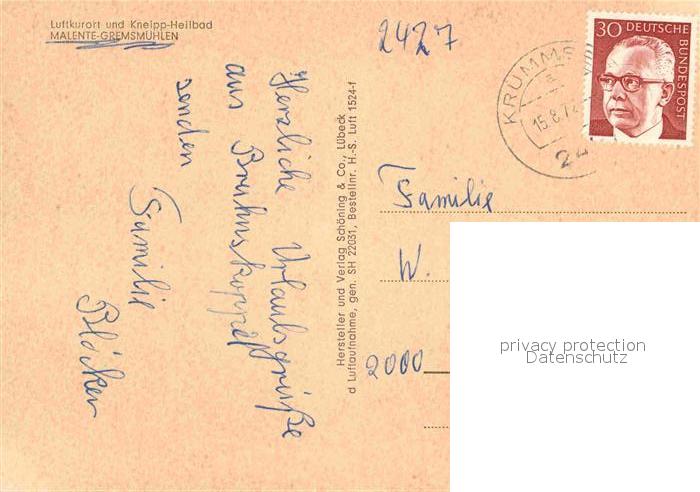 Luftkurort und Kneipp-Heilbad
MALENTE-GREMSMÜHLEN
2427
Herzliche Urlaubsgrüße
aus Bruhnskoppel
senden
Familie
Blöcker
Hersteller und Verlag Schöning & Co., Lübeck
d Luftaufnahme, gen. SH 22031, Bestellnr. H.-S. Luft 1524-f
30 DEUTSCHE
BUNDESPOST
15.8.7
24
Familie
W.
2000
privacy protection
Datenschutz